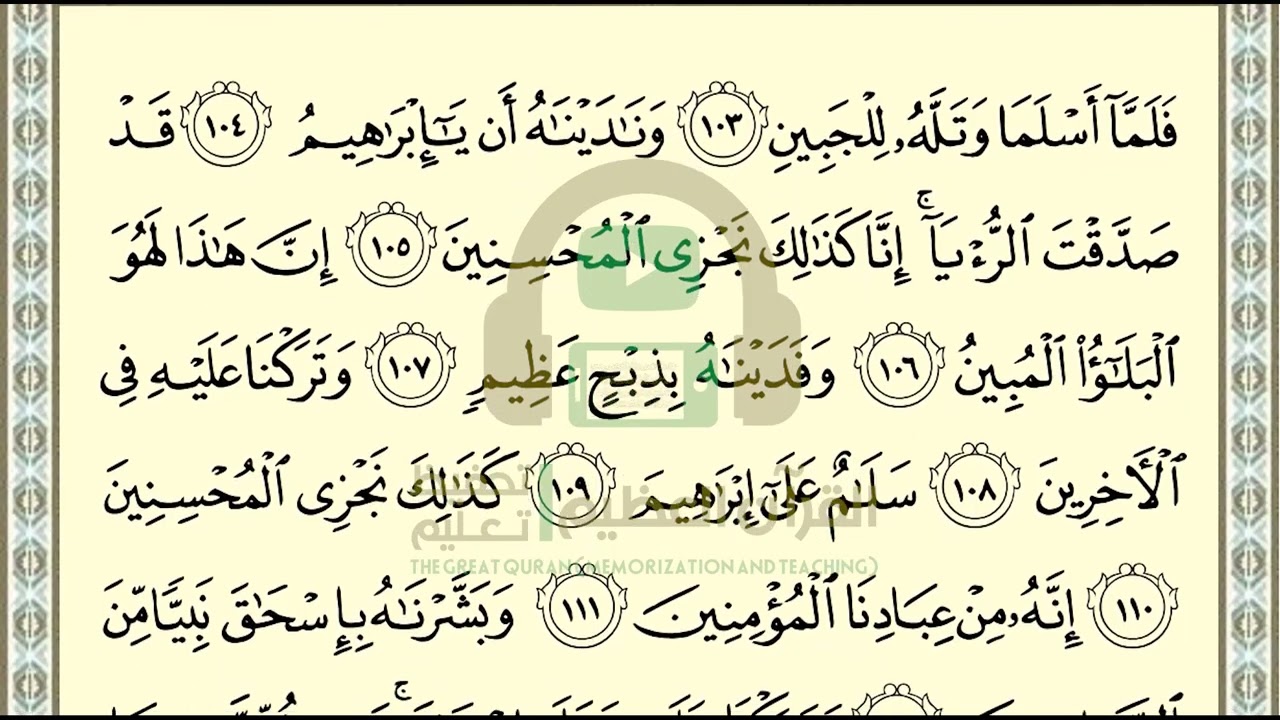 فَلَمَّآ أَسْلَمَا وَتَلَّهُۥ لِلْجَبِينِ ١٠٣ وَنَٰدَيْنَٰهُ أَن يَٰٓإِبْرَٰهِيمُ ١٠٤ قَدْ
صَدَّقْتَ ٱلرُّءْيَآ ۚ إِنَّا كَذَٰلِكَ نَجْزِى ٱلْمُحْسِنِينَ ١٠٥ إِنَّ هَٰذَا لَهُوَ
ٱلْبَلَٰٓؤُا۟ ٱلْمُبِينُ ١٠٦ وَفَدَيْنَٰهُ بِذِبْحٍ عَظِيمٍ ١٠٧ وَتَرَكْنَا عَلَيْهِ فِى
ٱلْأَخِرِينَ ١٠٨ سَلَٰمٌ عَلَىٰٓ إِبْرَٰهِيمَ ١٠٩ كَذَٰلِكَ نَجْزِى ٱلْمُحْسِنِينَ
القرآن العظيم تحفيظ تعليم
THE GREAT QURAN (MEMORIZATION AND TEACHING)
١١٠ إِنَّهُۥ مِنْ عِبَادِنَا ٱلْمُؤْمِنِينَ ١١١ وَبَشَّرْنَٰهُ بِإِسْحَٰقَ نَبِيًّا مِّنَ